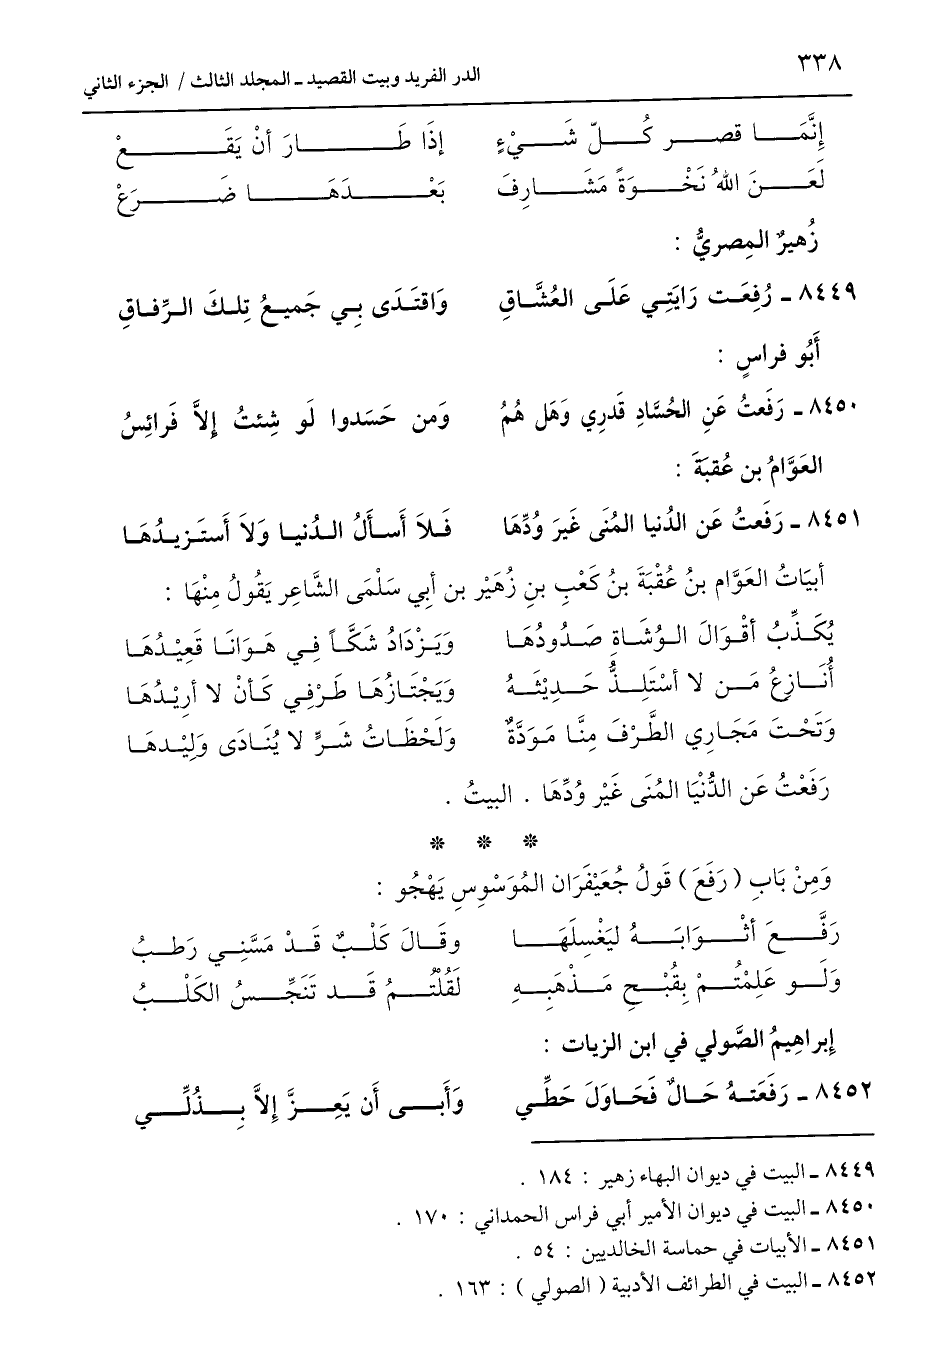 ٣٣٨
الدر الفريد وبيت القصيد ـ المجلد الثالث / الجزء الثاني
إِنَّمَا قصر كُلّ شَيْءٍ إذَا طَارَ أنْ يَقَعْ
لَعَنَ اللهُ نَخْوَةً مَشَارِفَ بَعْدَهَا ضَرَعْ
زُهيرٌ المِصريُّ :
٨٤٤٩ ـ رُفِعَت رَايَتِي عَلَى العُشَّاقِ وَاقتَدَى بِي جَميعُ تِلكَ الرِّفاقِ
أَبُو فراسٍ :
٨٤٥٠ ـ رَفَعتُ عَنِ الحُسَّادِ قَدرِي وَهَل هُمُ وَمن حَسَدوا لَو شِئتُ إِلاَّ فَرائِسُ
العَوَّامُ بن عُقبَةَ :
٨٤٥١ ـ رَفَعتُ عَن الدُنيا المُنَى غَيرَ وُدِّهَا فَلاَ أَسأَلُ الدُنيا وَلاَ أَستَزِيدُهَا
أبيَاتُ العَوَّام بنُ عُقْبَةَ بنُ كَعْبِ بنِ زُهَيْر بن أبي سَلْمَى الشَّاعِر يَقُولُ مِنْهَا :
يُكَذِّبُ أقْوَالَ الوُشَاةِ صَدُودُهَا وَيَزْدَادُ شَكَّاً فِي هَوَانَا قَعِيْدُهَا
أُنَازِعُ مَن لا أسْتَلِذُّ حَدِيْثَهُ وَيَجْتَازُهَا طَرْفِي كَأنْ لا أرِيْدُهَا
وَتَحْتَ مَجَارِي الطَّرْفَ مِنَّا مَوَدَّةٌ وَلَحْظَاتُ شَرٍّ لا يُنَادَى وَلِيْدهَا
رَفَعْتُ عَن الدُّنْيَا المُنَى غَيْر وُدِّهَا . البيتُ .
* * *
وَمِنْ بَابِ ( رَفَعَ ) قَولُ جُعَيْفَرَان المُوَسْوِسِ يَهْجُو :
رَفَّعَ أثْوَابَهُ ليَغْسِلَهَا وقَالَ كَلْبٌ قَدْ مَسَّنِي رَطبُ
وَلَو عَلِمْتُمْ بِقُبْحِ مَذْهَبِهِ لَقُلْتُمُ قَد تَنَجِّسُ الكَلْبُ
إِبراهِيمُ الصَّولي في ابن الزيات :
٨٤٥٢ ـ رَفَعَتهُ حَالٌ فَحَاوَلَ حَطِّي وَأَبى أَن يَعِزَّ إِلاَّ بِذُلِّي
٨٤٤٩ ـ البيت في ديوان البهاء زهير : ١٨٤ .
٨٤٥٠ ـ البيت في ديوان الأمير أبي فراس الحمداني : ١٧٠ .
٨٤٥١ ـ الأبيات في حماسة الخالديين : ٥٤ .
٨٤٥٢ ـ البيت في الطرائف الأدبية ( الصولي ) : ١٦٣ .